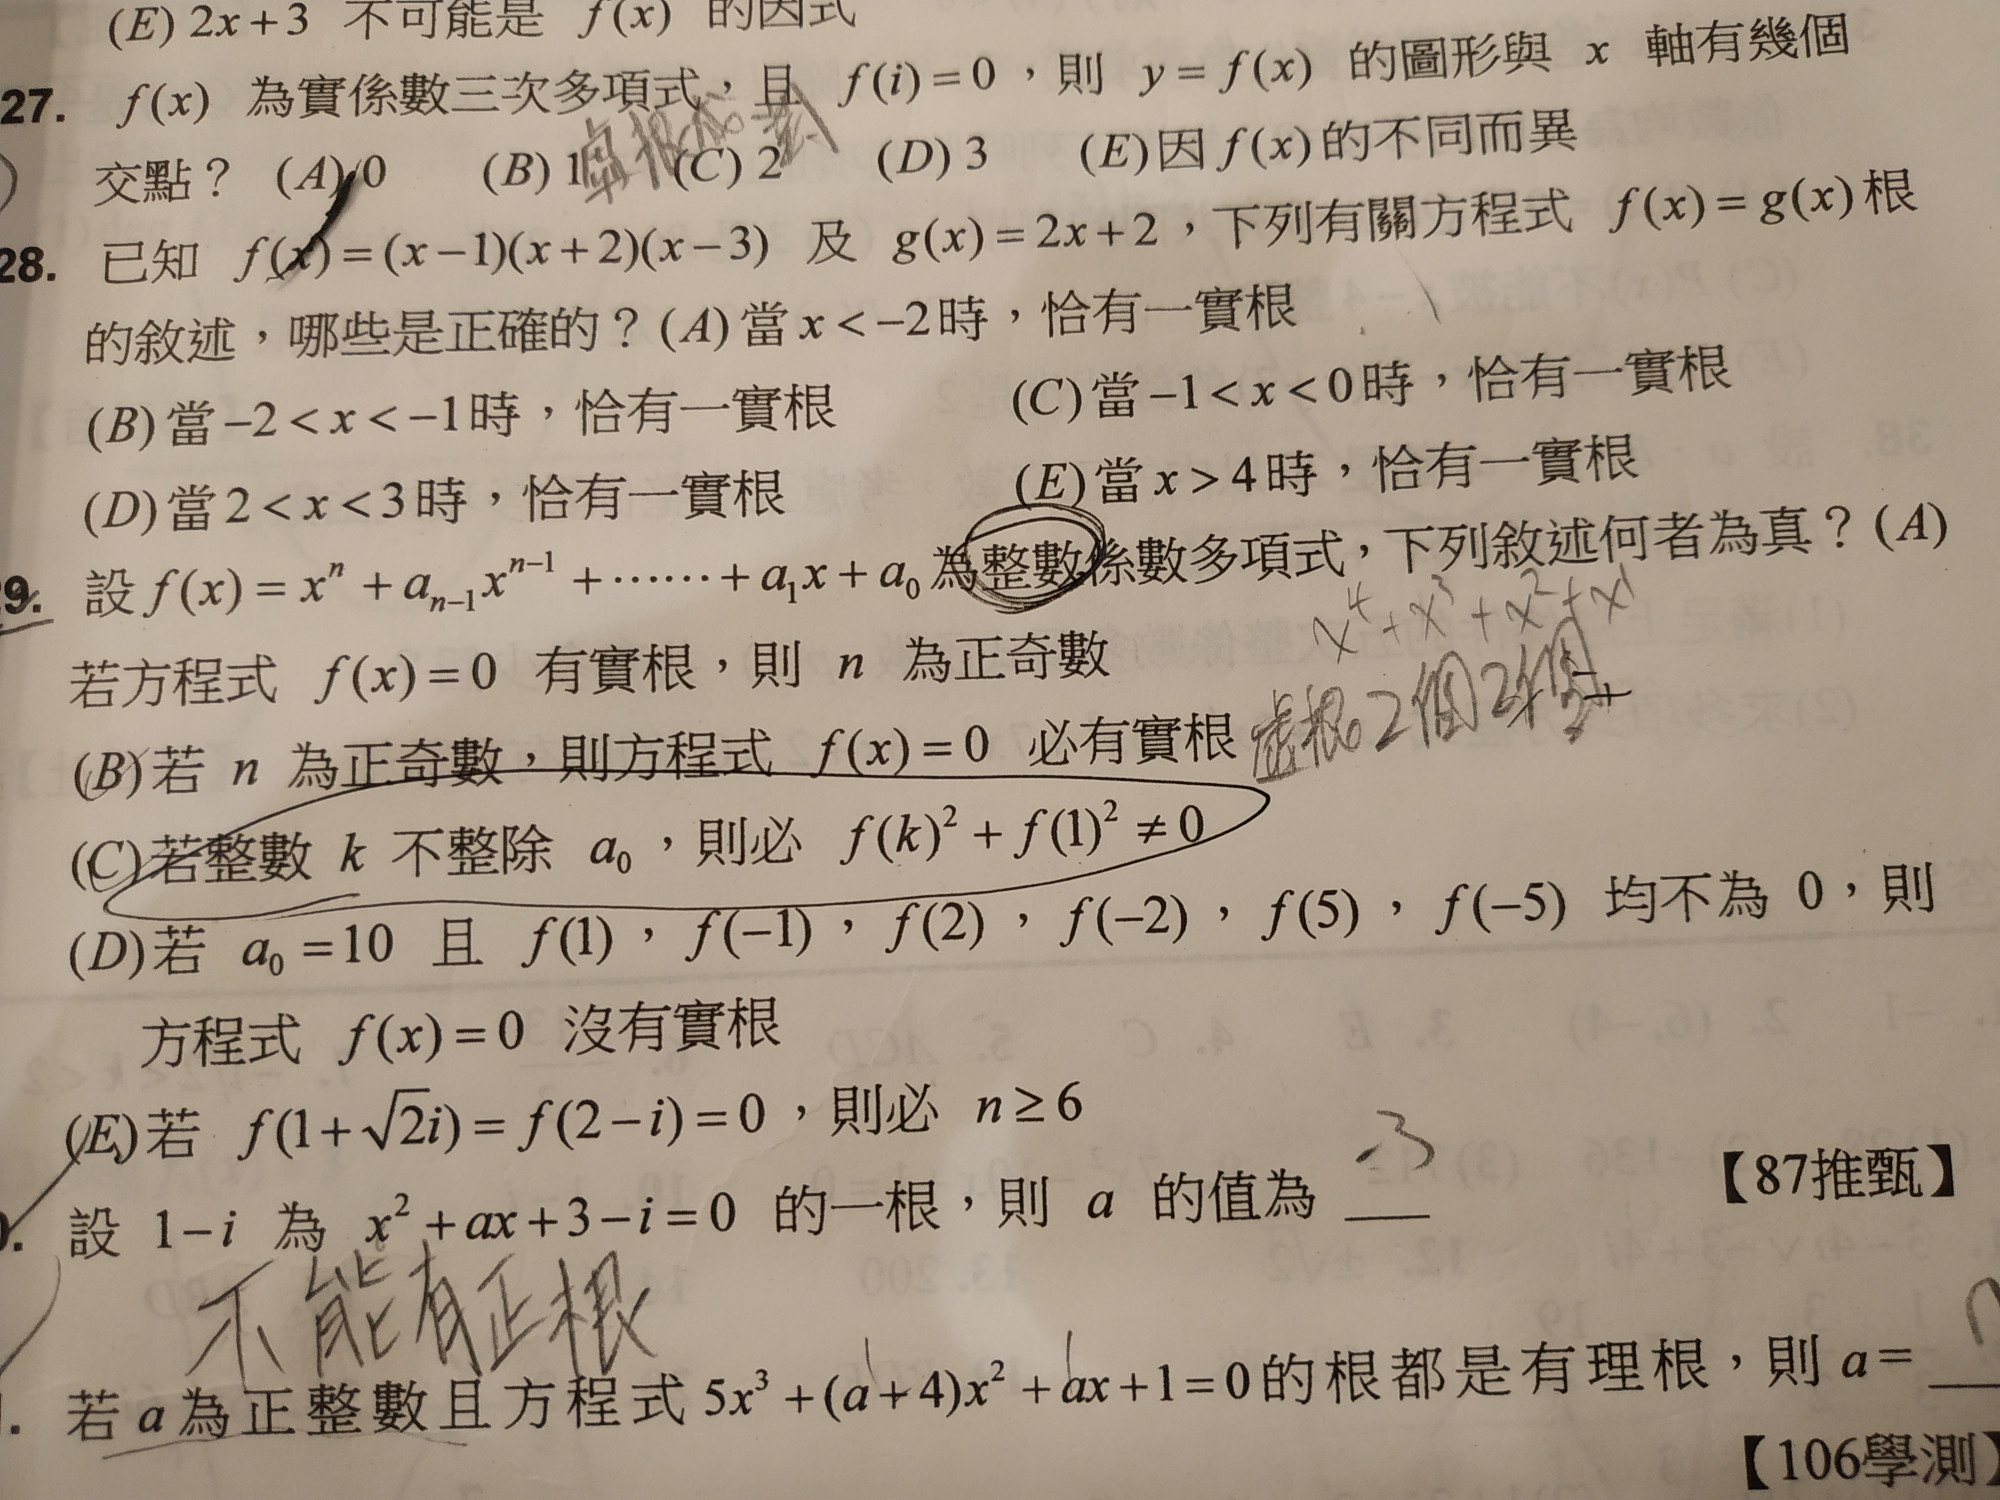 (E) 2x+3 不可能是 f(x) 的因式
27. f(x) 為實係數三次多項式，且 f(i)=0，則 y=f(x) 的圖形與 x 軸有幾個
虛根成對
交點？ (A) 0 (B) 1 (C) 2 (D) 3 (E)因 f(x)的不同而異
28. 已知 f(x)=(x−1)(x+2)(x−3) 及 g(x)=2x+2，下列有關方程式 f(x)=g(x)根
的敘述，哪些是正確的？(A)當x<−2時，恰有一實根
(B)當−2<x<−1時，恰有一實根 (C)當−1<x<0時，恰有一實根
(D)當2<x<3時，恰有一實根 (E)當x>4時，恰有一實根
9. 設f(x)=xⁿ+aₙ₋₁xⁿ⁻¹+……+a₁x+a₀為整數係數多項式，下列敘述何者為真？(A)
x⁴+x³+x²+x¹
若方程式 f(x)=0 有實根，則 n 為正奇數
(B)若 n 為正奇數，則方程式 f(x)=0 必有實根 虛根2個2個
(C)若整數 k 不整除 a₀，則必 f(k)²+f(1)²≠0
(D)若 a₀=10 且 f(1)，f(−1)，f(2)，f(−2)，f(5)，f(−5) 均不為 0，則
方程式 f(x)=0 沒有實根
(E)若 f(1+√2i)=f(2−i)=0，則必 n≥6
【87推甄】
設 1−i 為 x²+ax+3−i=0 的一根，則 a 的值為 -3
不能有正根
若a為正整數且方程式5x³+(a+4)x²+ax+1=0的根都是有理根，則a=
【106學測】